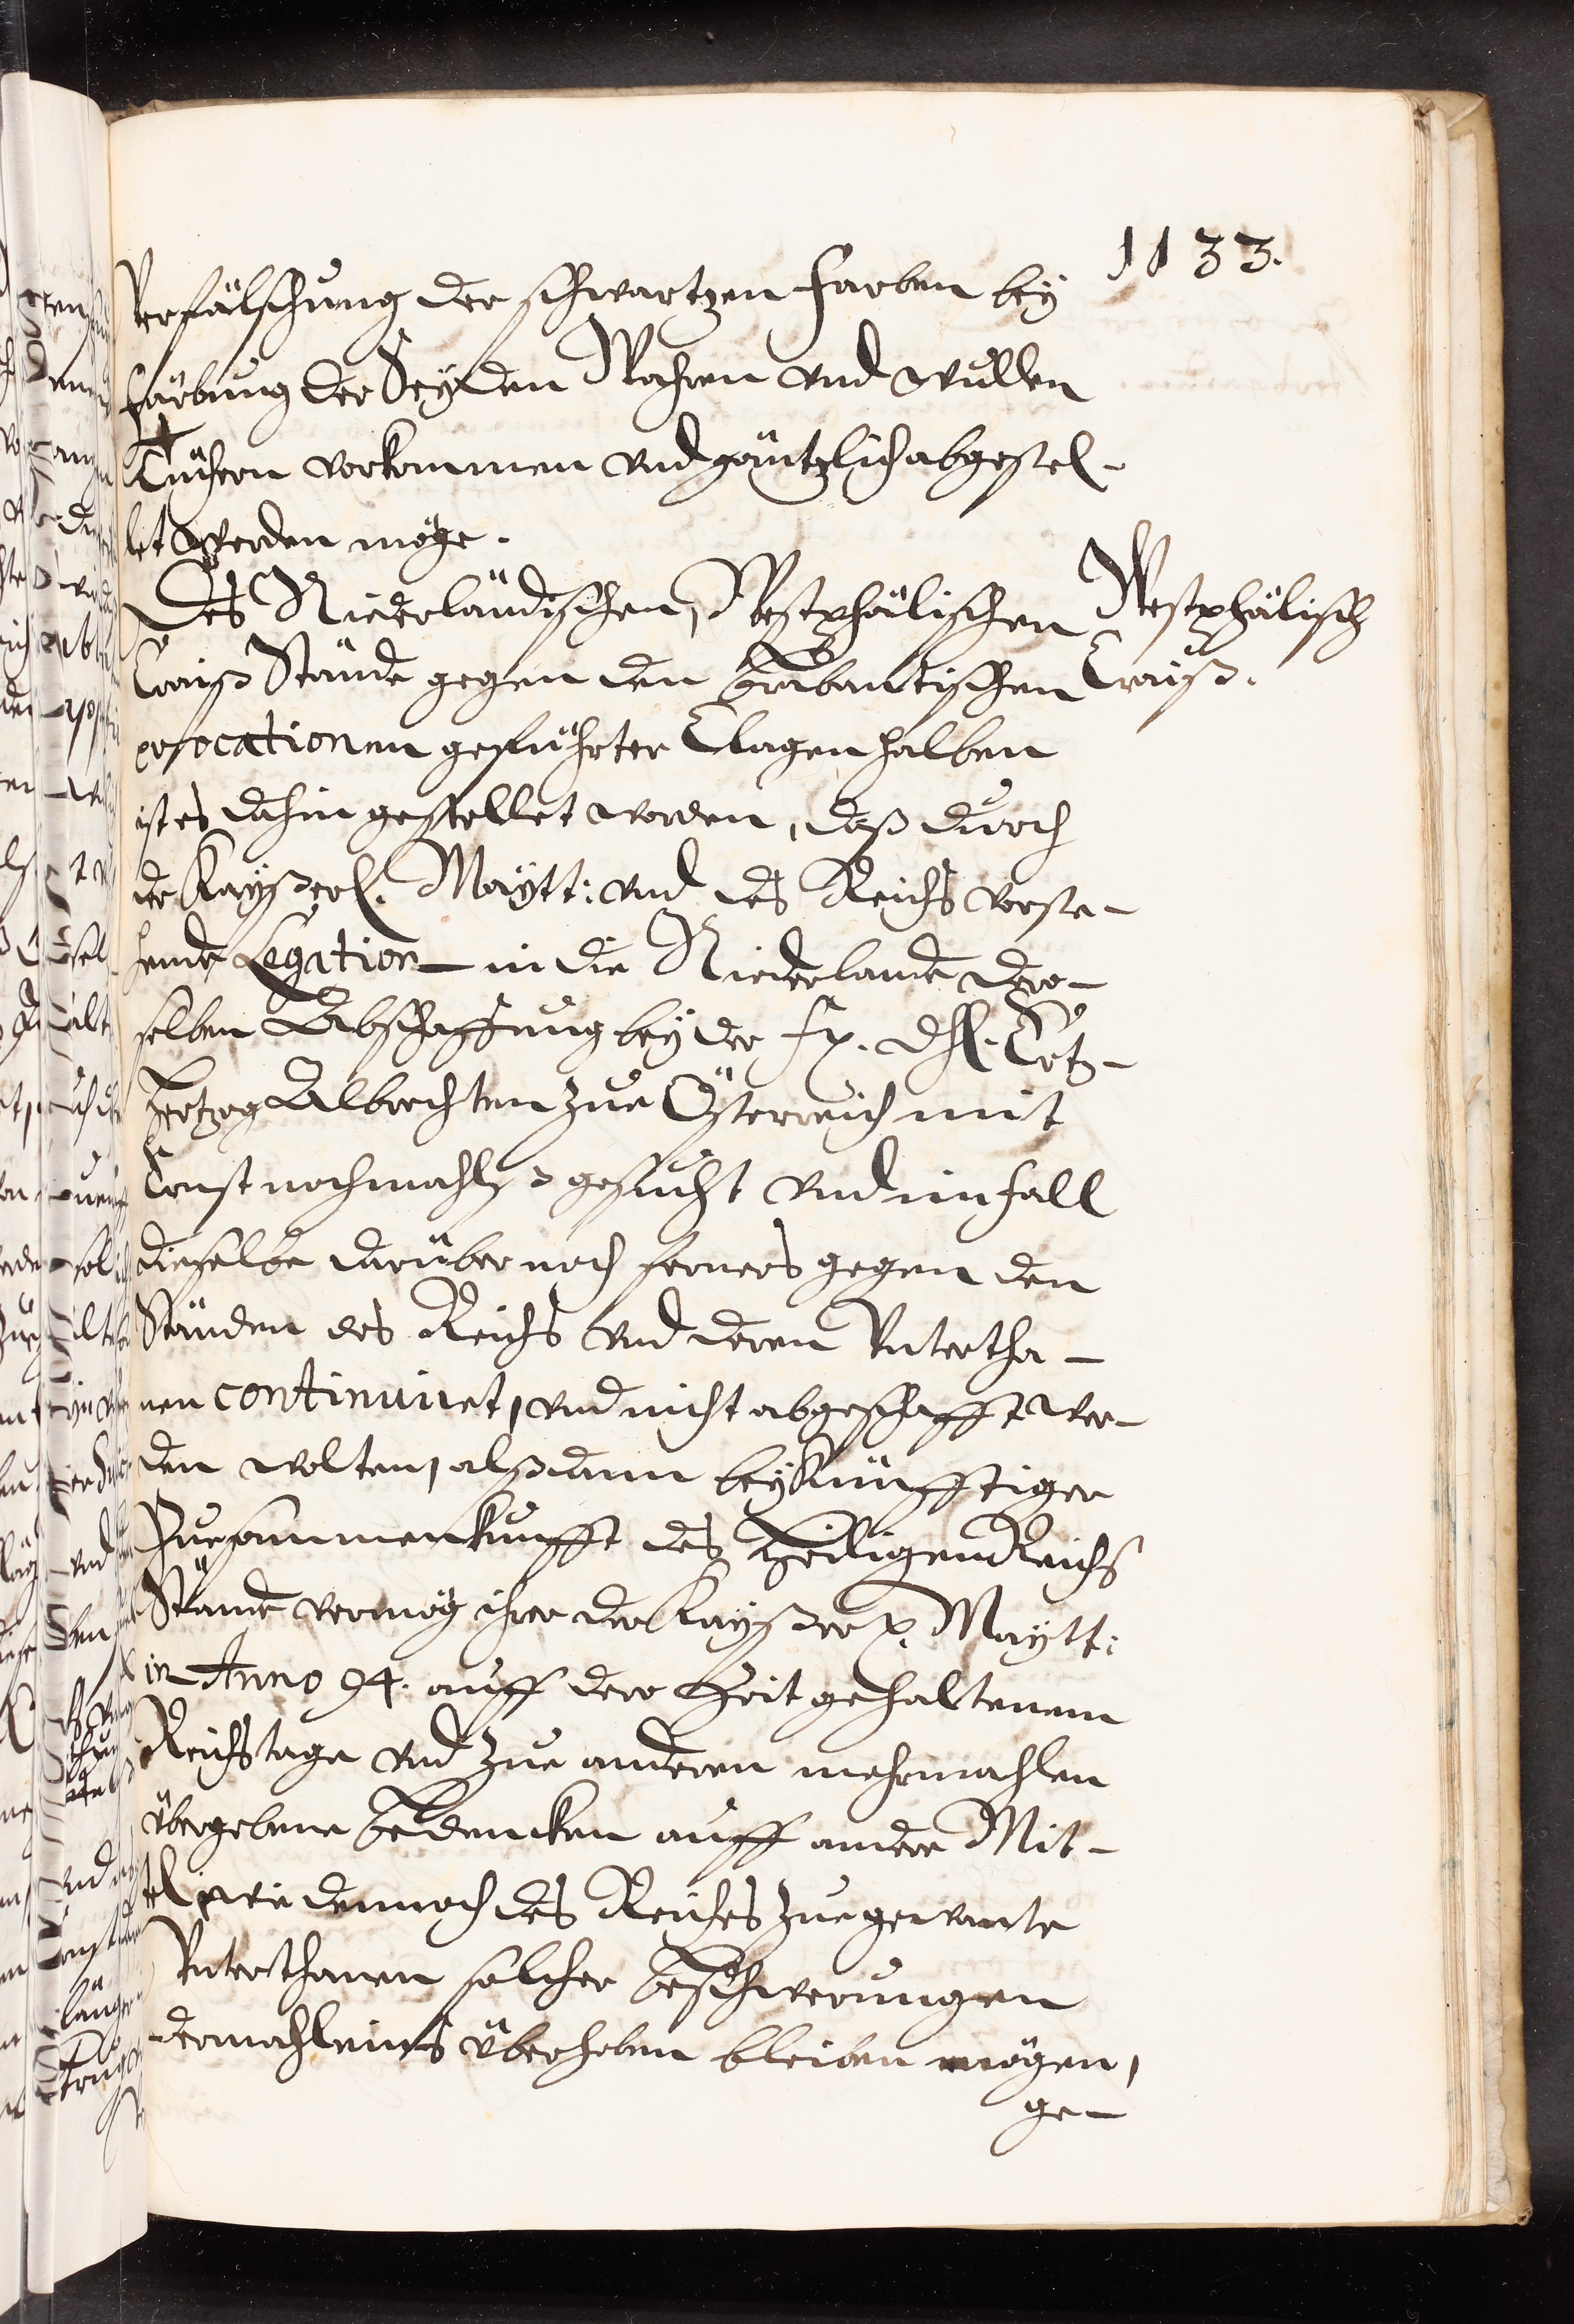 1133.
Verfälschung der schwartzen Farben bey
Färbung der Seyden Wahren vnd wullen
Tüchern vorkommen vnd gäntzlich abgestel-
let werden möge.
Des Niederländischen, Westphälischen
Westphälisch
Craiß Stände gegen den Brabantischen
Craiß.
evocationen geführter Clagen halben
ist es dahin gestellet worden, daß durch
der Kayßerl. Maytt: vnd des Reichs vorste-
hende Legation in die Niederlande der-
selben Abschaffung bey der F. Dhl. Ertz-
hertzog Albrechten zue Österreich mit
Ernst nochmahls gesucht vnd im fall
dieselbe darüber noch ferners gegen den
Ständen des Reichs vnd deren Vntertha-
nen continuiret, vnd nicht abgeschafft wer-
den wolten, alßdann bey künfftiger
Zuesammenkunfft des Heiligen Reichs
Stände vermög ihrer der Kayßer. Maytt:
in Anno 94. auff dero Zeit gehaltenem
Reichstage vnd zue anderen mehrmahlen
übergebene bedencken auff andere Mit-
tel, wie dennoch des Reiches zuegewante
Vnterthanen solcher beschwerungen
dermahleins überhoben bleiben mögen,
ge-